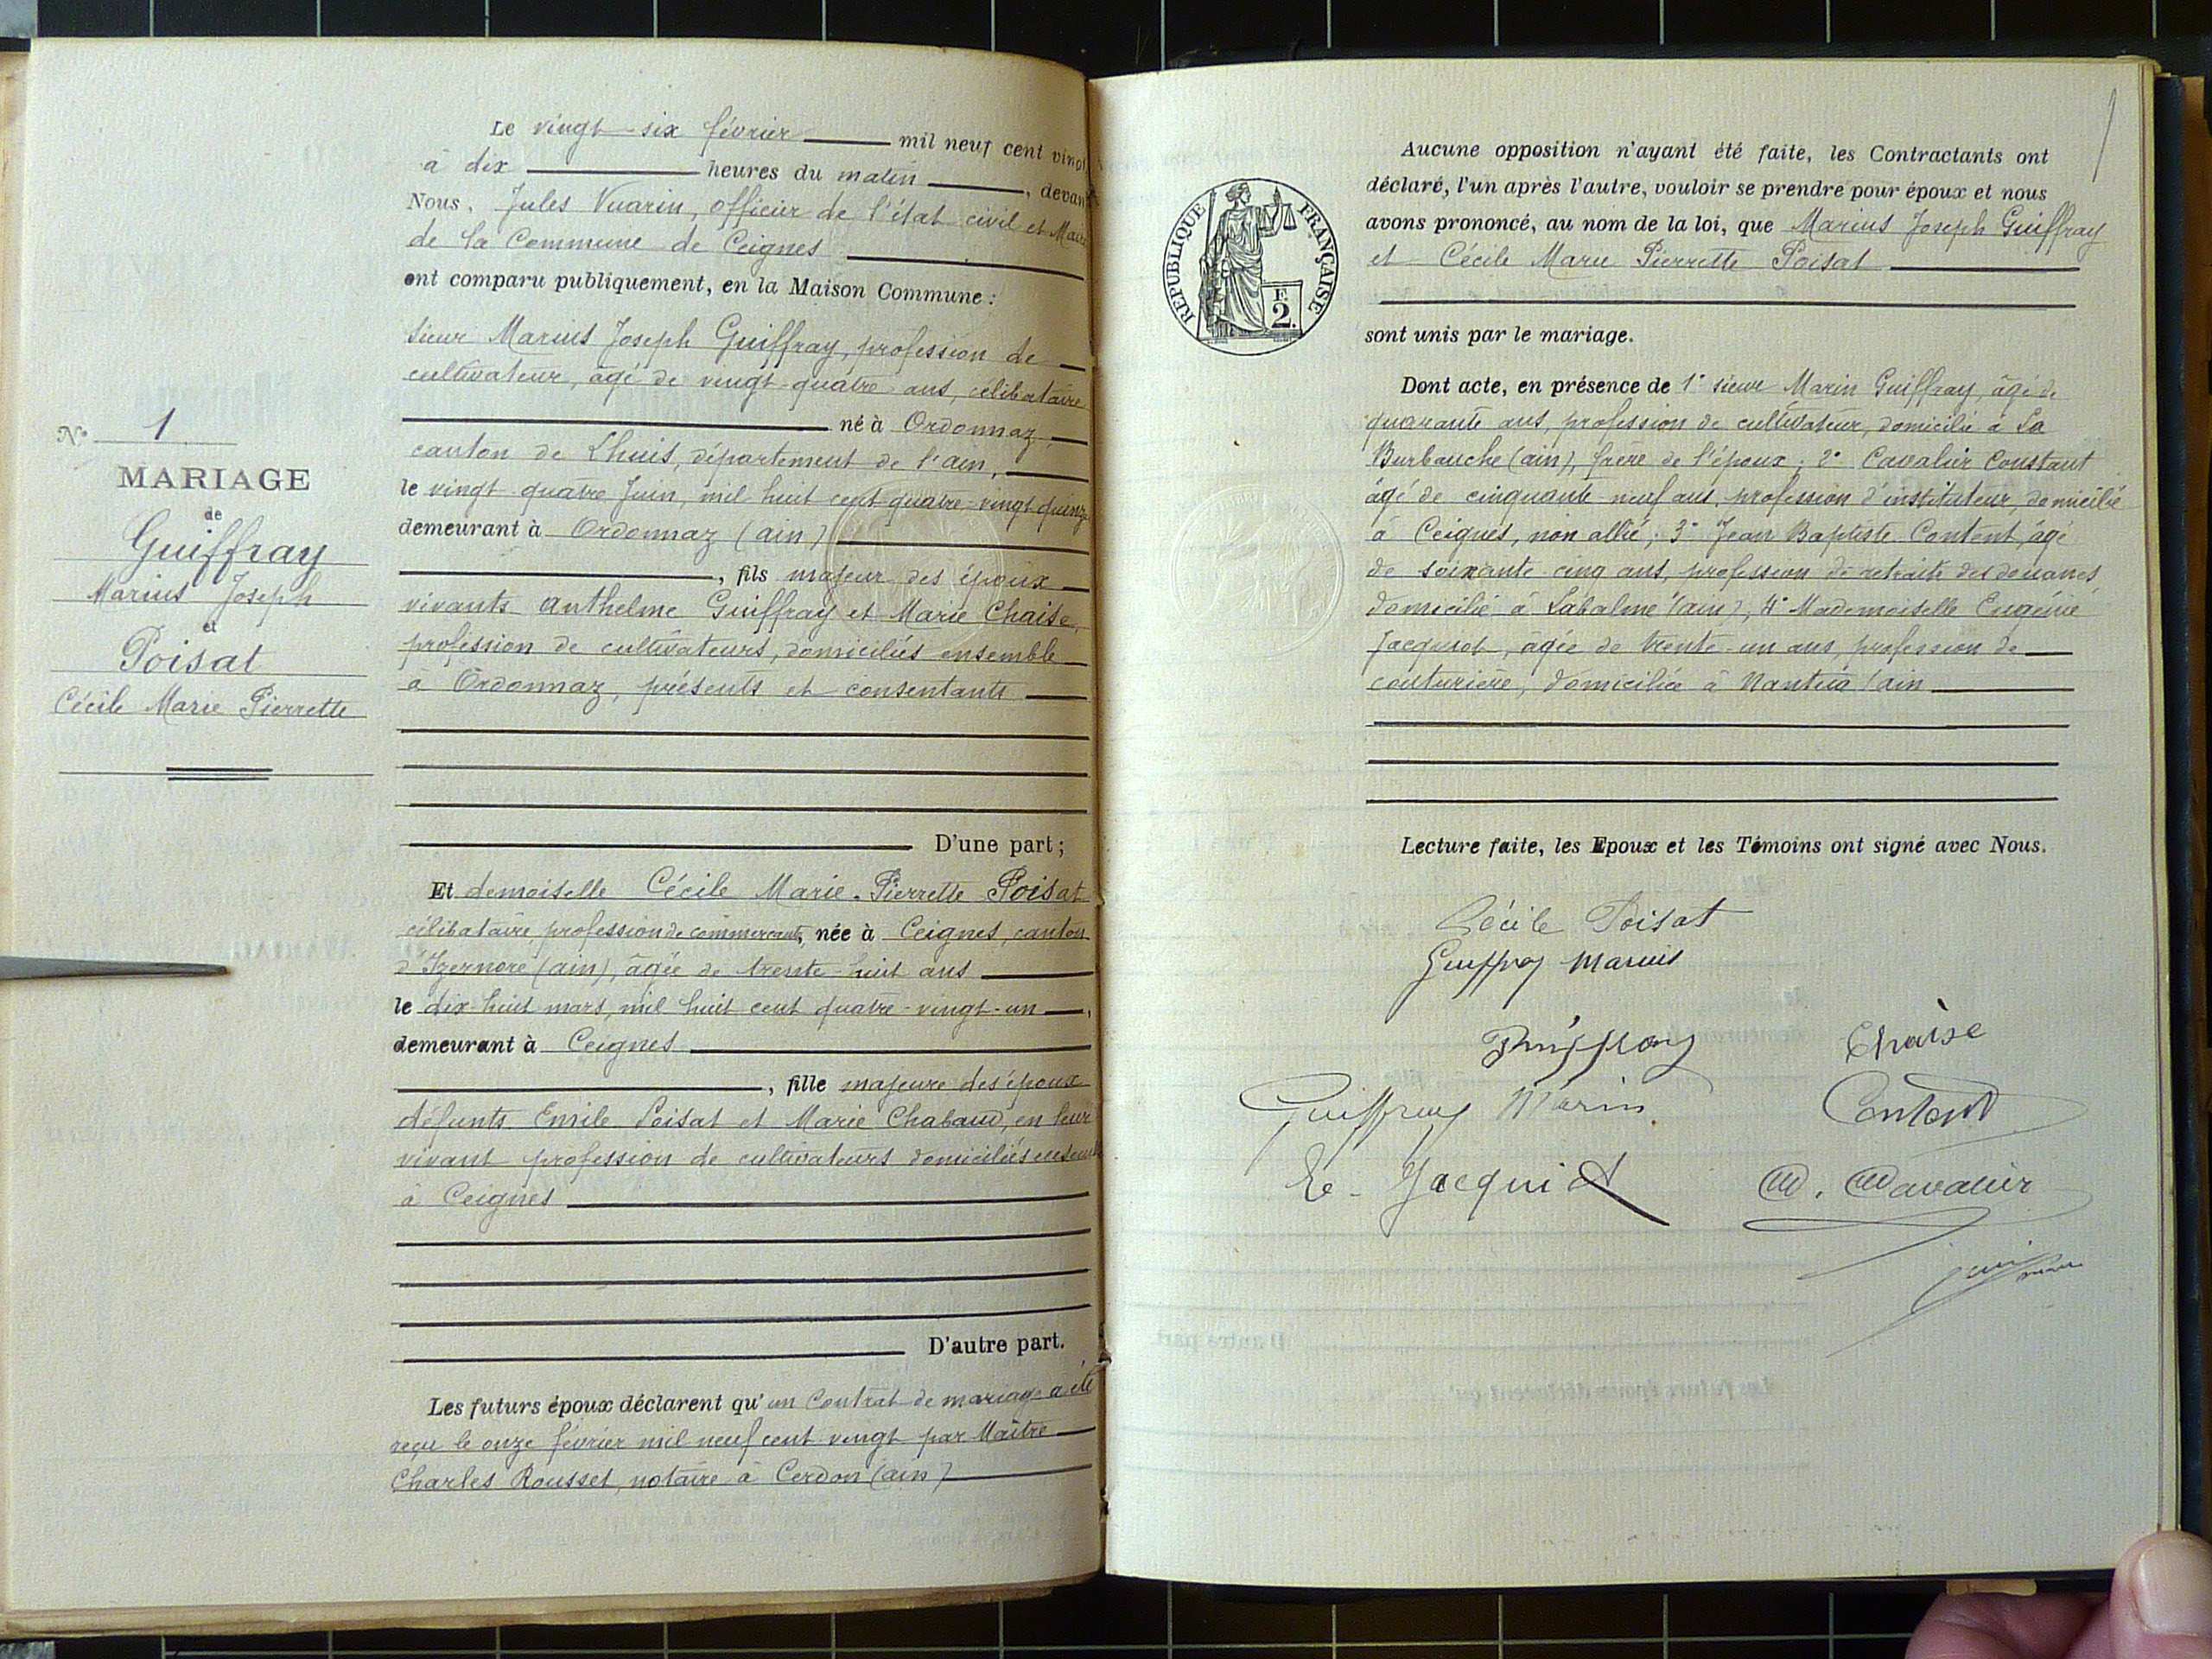 N° 1
MARIAGE
de
Guiffray
Marius Joseph
et
Poisat
Cécile Marie Pierrette
Le vingt-six février mil neuf cent vingt
à dix heures du matin, devant
Nous, Jules Vuarin, officier de l'état civil et Maire
de la Commune de Ceignes
ont comparu publiquement, en la Maison Commune :
sieur Marius Joseph Guiffray, profession de
cultivateur, âgé de vingt-quatre ans, célibataire
né à Ordonnaz,
canton de Lhuis, département de l'ain,
le vingt quatre Juin, mil huit cent quatre-vingt quinze
demeurant à Ordonnaz (ain)
, fils majeur des époux
vivants Anthelme Guiffray et Marie Chaise,
profession de cultivateurs, domiciliés ensemble
à Ordonnaz, présents et consentants
D'une part ;
Et demoiselle Cécile Marie-Pierrette Poisat
célibataire, profession de commerçante, née à Ceignes, canton
d'Izernore (ain), âgée de trente-huit ans
le dix-huit mars, mil huit cent quatre-vingt-un,
demeurant à Ceignes
, fille majeure des époux
défunts Emile Poisat et Marie Chabaud, en leur
vivant profession de cultivateurs domiciliés ensemble
à Ceignes
D'autre part.
Les futurs époux déclarent qu'un Contrat de mariage a été
reçu le onze février mil neuf cent vingt par Maître
Charles Rousset, notaire à Cerdon (ain)
RÉPUBLIQUE FRANÇAISE
F.
2.
Aucune opposition n'ayant été faite, les Contractants ont
déclaré, l'un après l'autre, vouloir se prendre pour époux et nous
avons prononcé, au nom de la loi, que Marius Joseph Guiffray
et Cécile Marie Pierrette Poisat
sont unis par le mariage.
Dont acte, en présence de 1° sieur Marin Guiffray, âgé de
quarante ans, profession de cultivateur, domicilié à La
Burbanche (ain), frère de l'époux ; 2° Cavalier Constant
âgé de cinquante-neuf ans, profession d'instituteur, domicilié
à Ceignes, non allié ; 3° Jean Baptiste Content, âgé
de soixante-cinq ans, profession de retraité des douanes
domicilié à Labalme (ain), 4° Mademoiselle Eugénie
Jacquiot, âgée de trente-un ans, profession de
couturière, domiciliée à Nantua (ain
Lecture faite, les Epoux et les Témoins ont signé avec Nous.
Cécile Poisat
Guiffray Marius
Guiffray Chaise
Guiffray Marin Content
E. Jacquiot C. Cavalier